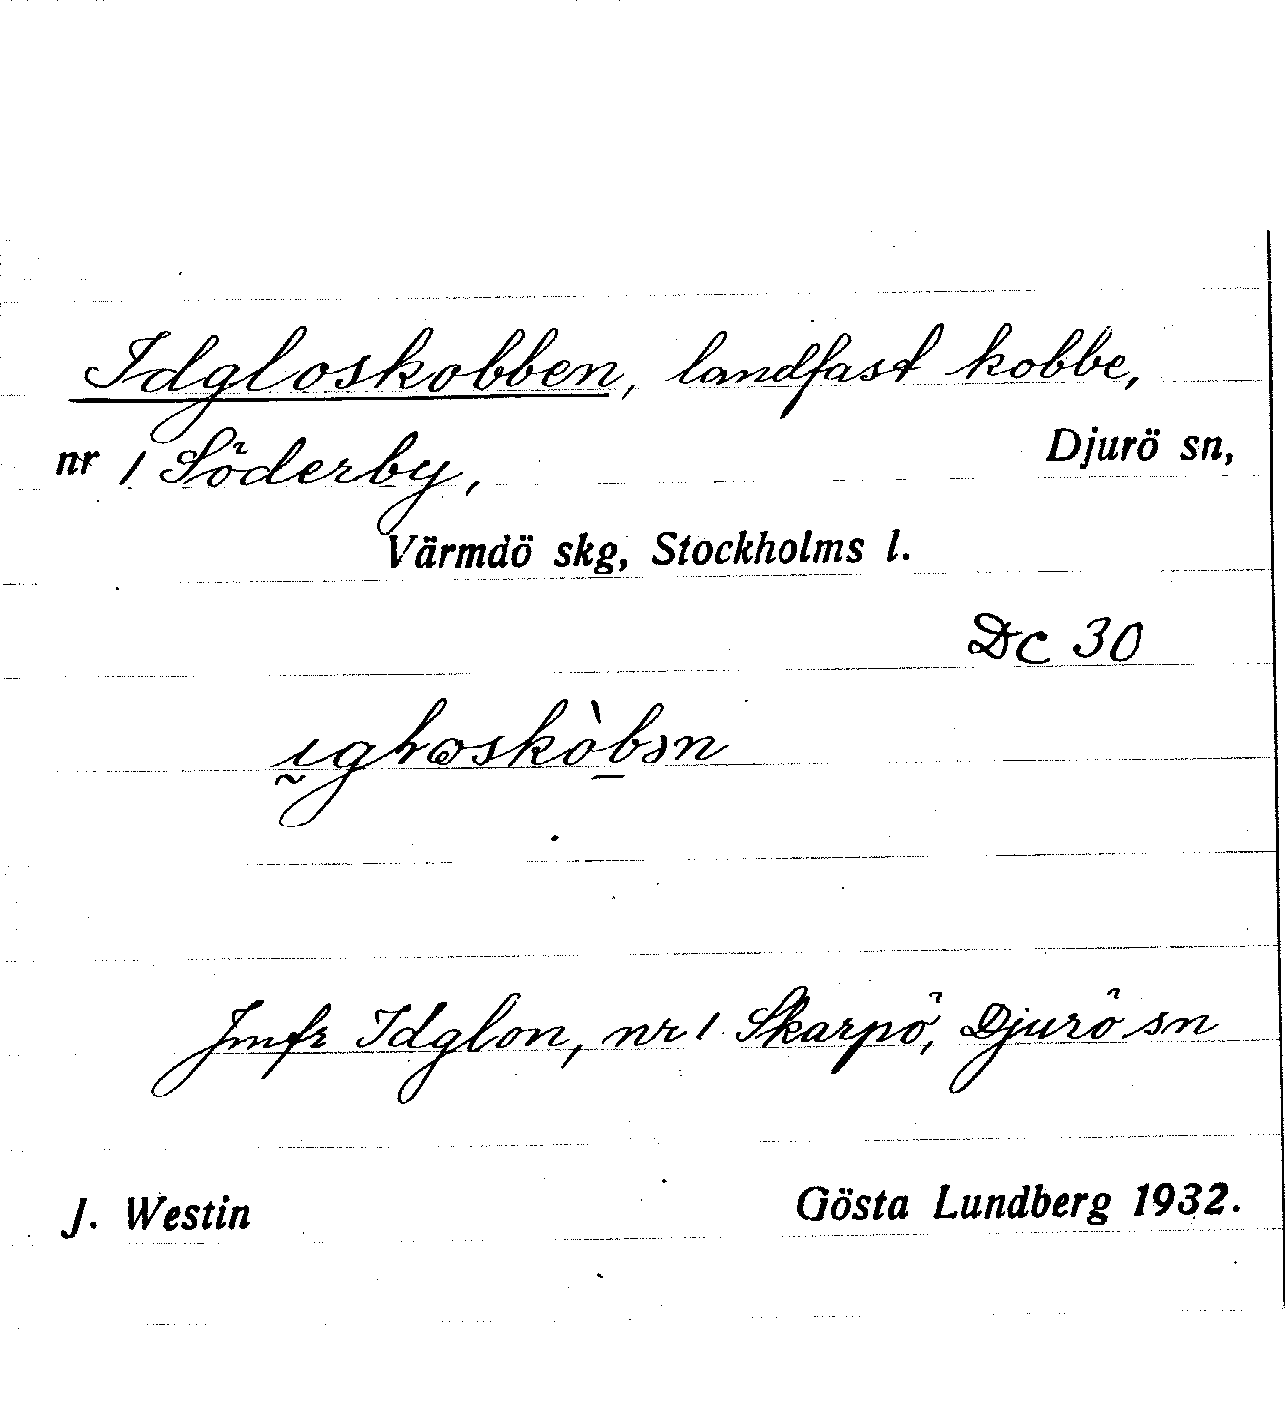 Idgloskobben, landfast kobbe,
nr 1 Söderby, Djurö sn,
Värmdö skg, Stockholms l.
Dc 30
Jmfr Idglon, nr 1 Skarpö, Djurö sn
J. Westin Gösta Lundberg 1932.